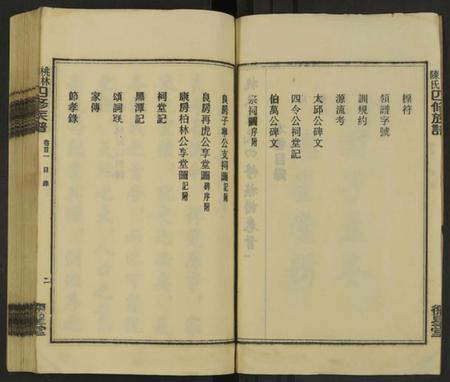 陳氏四修族譜
標符
領譜字號
訓規約
源流考
太邱公碑文
四令公祠堂記
伯萬公碑文
宗祠圖序附
良房子舉公支祠圖記附
良房再虎公享堂圖碑序附
康房柏林公享堂圖記附
祠堂記
墨潭記
頌詞聯
家傳
節孝錄
桃林四修族譜
卷首一 目錄
二